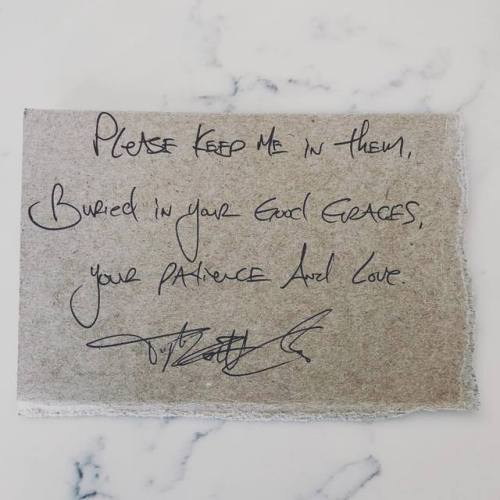 PLEASE KEEP ME IN them,
Buried in your Good GRACES,
your PAtiENCE And Love.